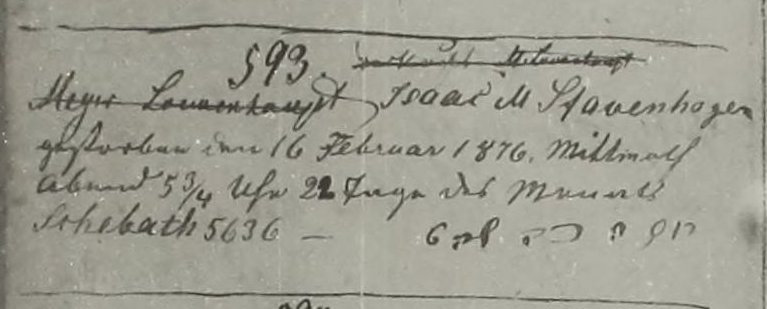 593.
Meyer Louvenhaupt Isaac M Stavenhagen
gestorben den 16 Februar 1876. Mittwoch
Abend 5 3/4 Uhr 21 Tage des Monats
Schebath 5636 —